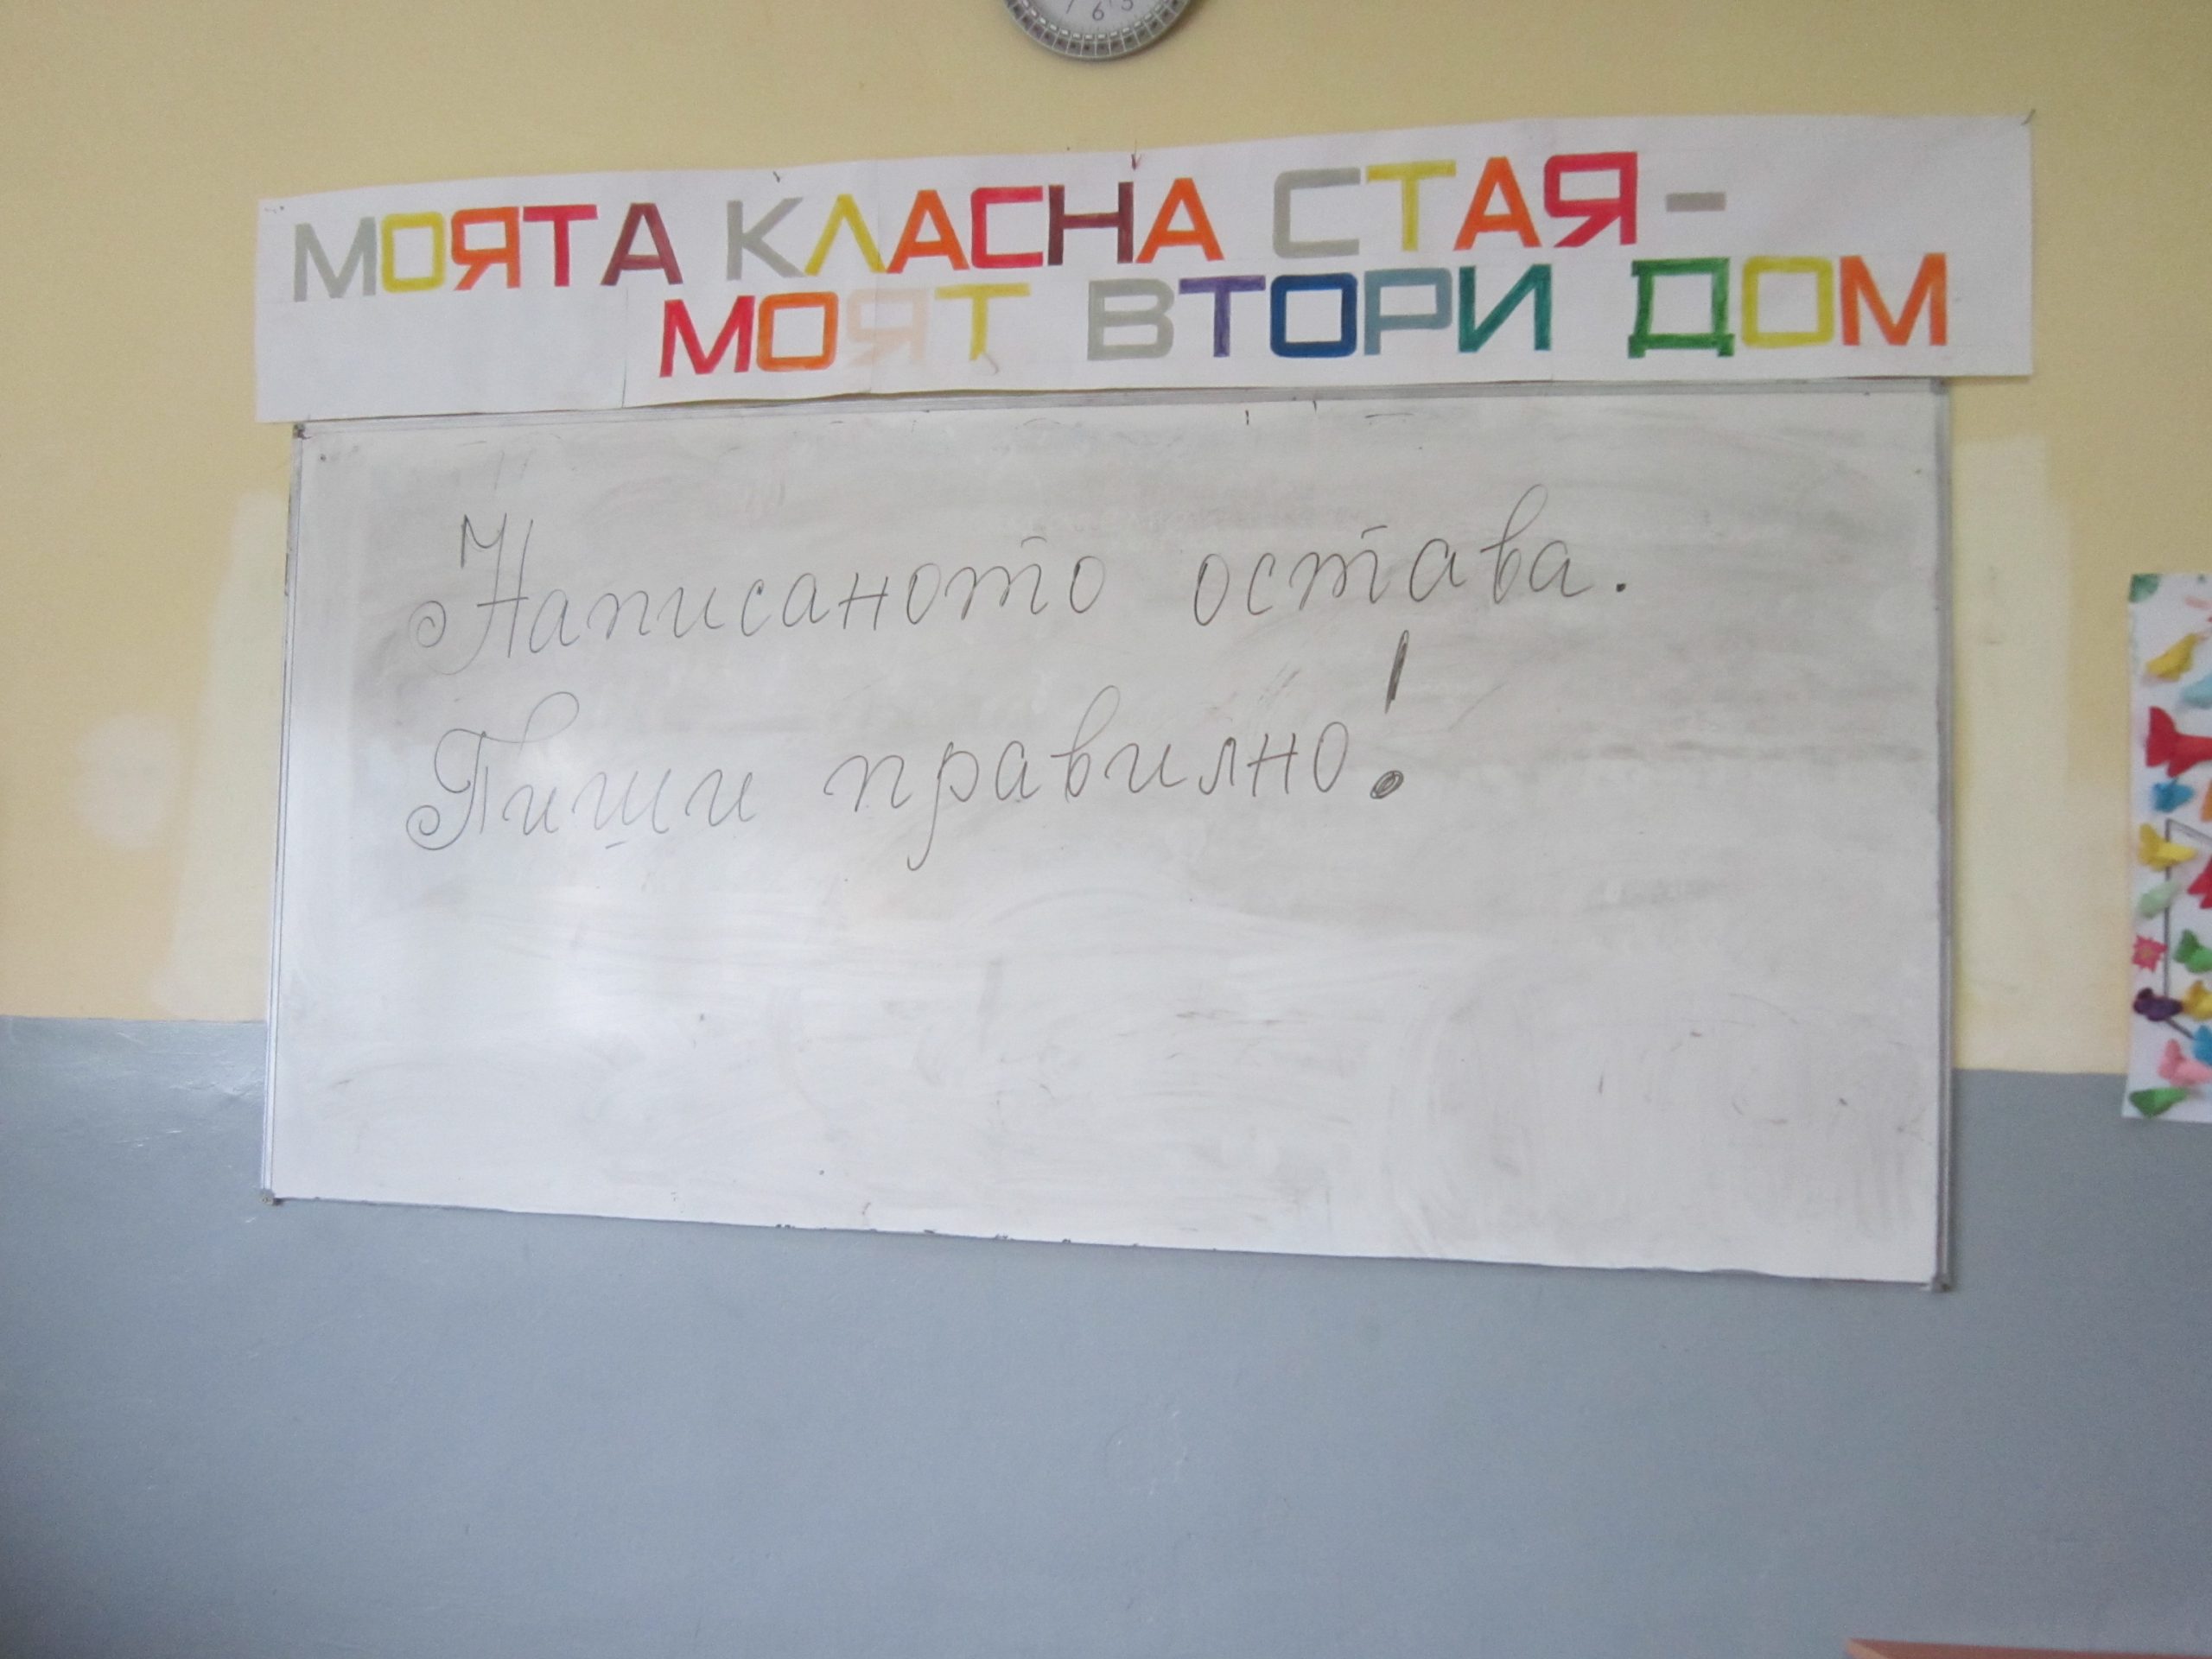 МОЯТА КЛАСНА СТАЯ -
МОЯТ ВТОРИ ДОМ
Написаното остава.
Пиши правилно!